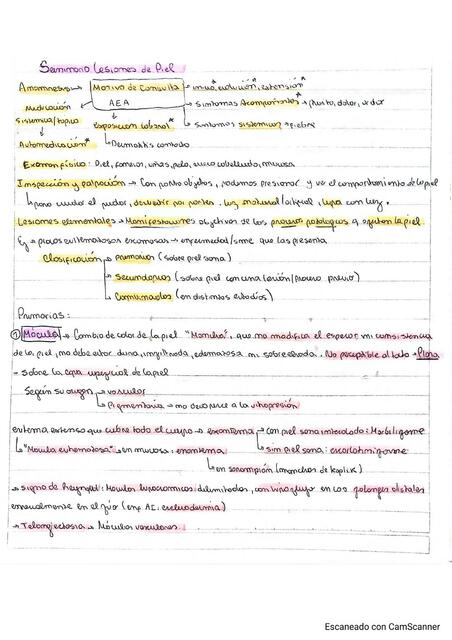 Seminario Lesiones de Piel
Anamnesis → Motivo de Consulta → inicio, evolución, extensión*
Medicación AEA → Síntomas Acompañantes* → prurito, dolor, ardor
Sistemica/topica exposicion laboral* → Síntomas sistemicos* → Fiebre
Automedicación* → Dermatitis contacto
Examen físico: Piel, faneras, uñas, pelo, cuero cabelludo, mucosa
Inspección y palpación → Con porta objetos, podemos presionar y ver el comportamiento de la piel
para cuidar el pudor, desvestir por partes. luz natural/artificial, lupa con luz.
Lesiones elementales → Manifestaciones objetivas de los procesos patologicos q afectan la piel
Ej → placas eritematosas escamosas → enfermedad/sme que las presenta
Clasificación → primarias (sobre piel sana)
→ Secundarias (sobre piel con una lesión/proceso previo)
→ Combinadas (en distintos estadíos)
Primarias:
① Mácula → Cambio de color de la piel "Mancha", que no modifica el espesor ni consistencia
de la piel, no debe estar dura, infiltrada, edematosa ni sobreelevada. No perceptible al tacto → Plana
→ sobre la capa superficial de la piel
Según su origen → vascular
→ Pigmentaria → no desaparece a la vitropresión
eritema extenso que cubre todo el cuerpo → exantema → con piel sana intercalada: Morbiliforme
→ "Macula eritematosa" → en mucosa: enantema → sin piel sana: escarlatiniforme
→ en sarampión (manchas de koplick)
→ signo de Raynaud: Máculas hipocromicas delimitadas, con hipoflujo en las falanges distales
esclerodermia)
→ Telangiectasia → Máculas vasculares.
Escaneado con CamScanner